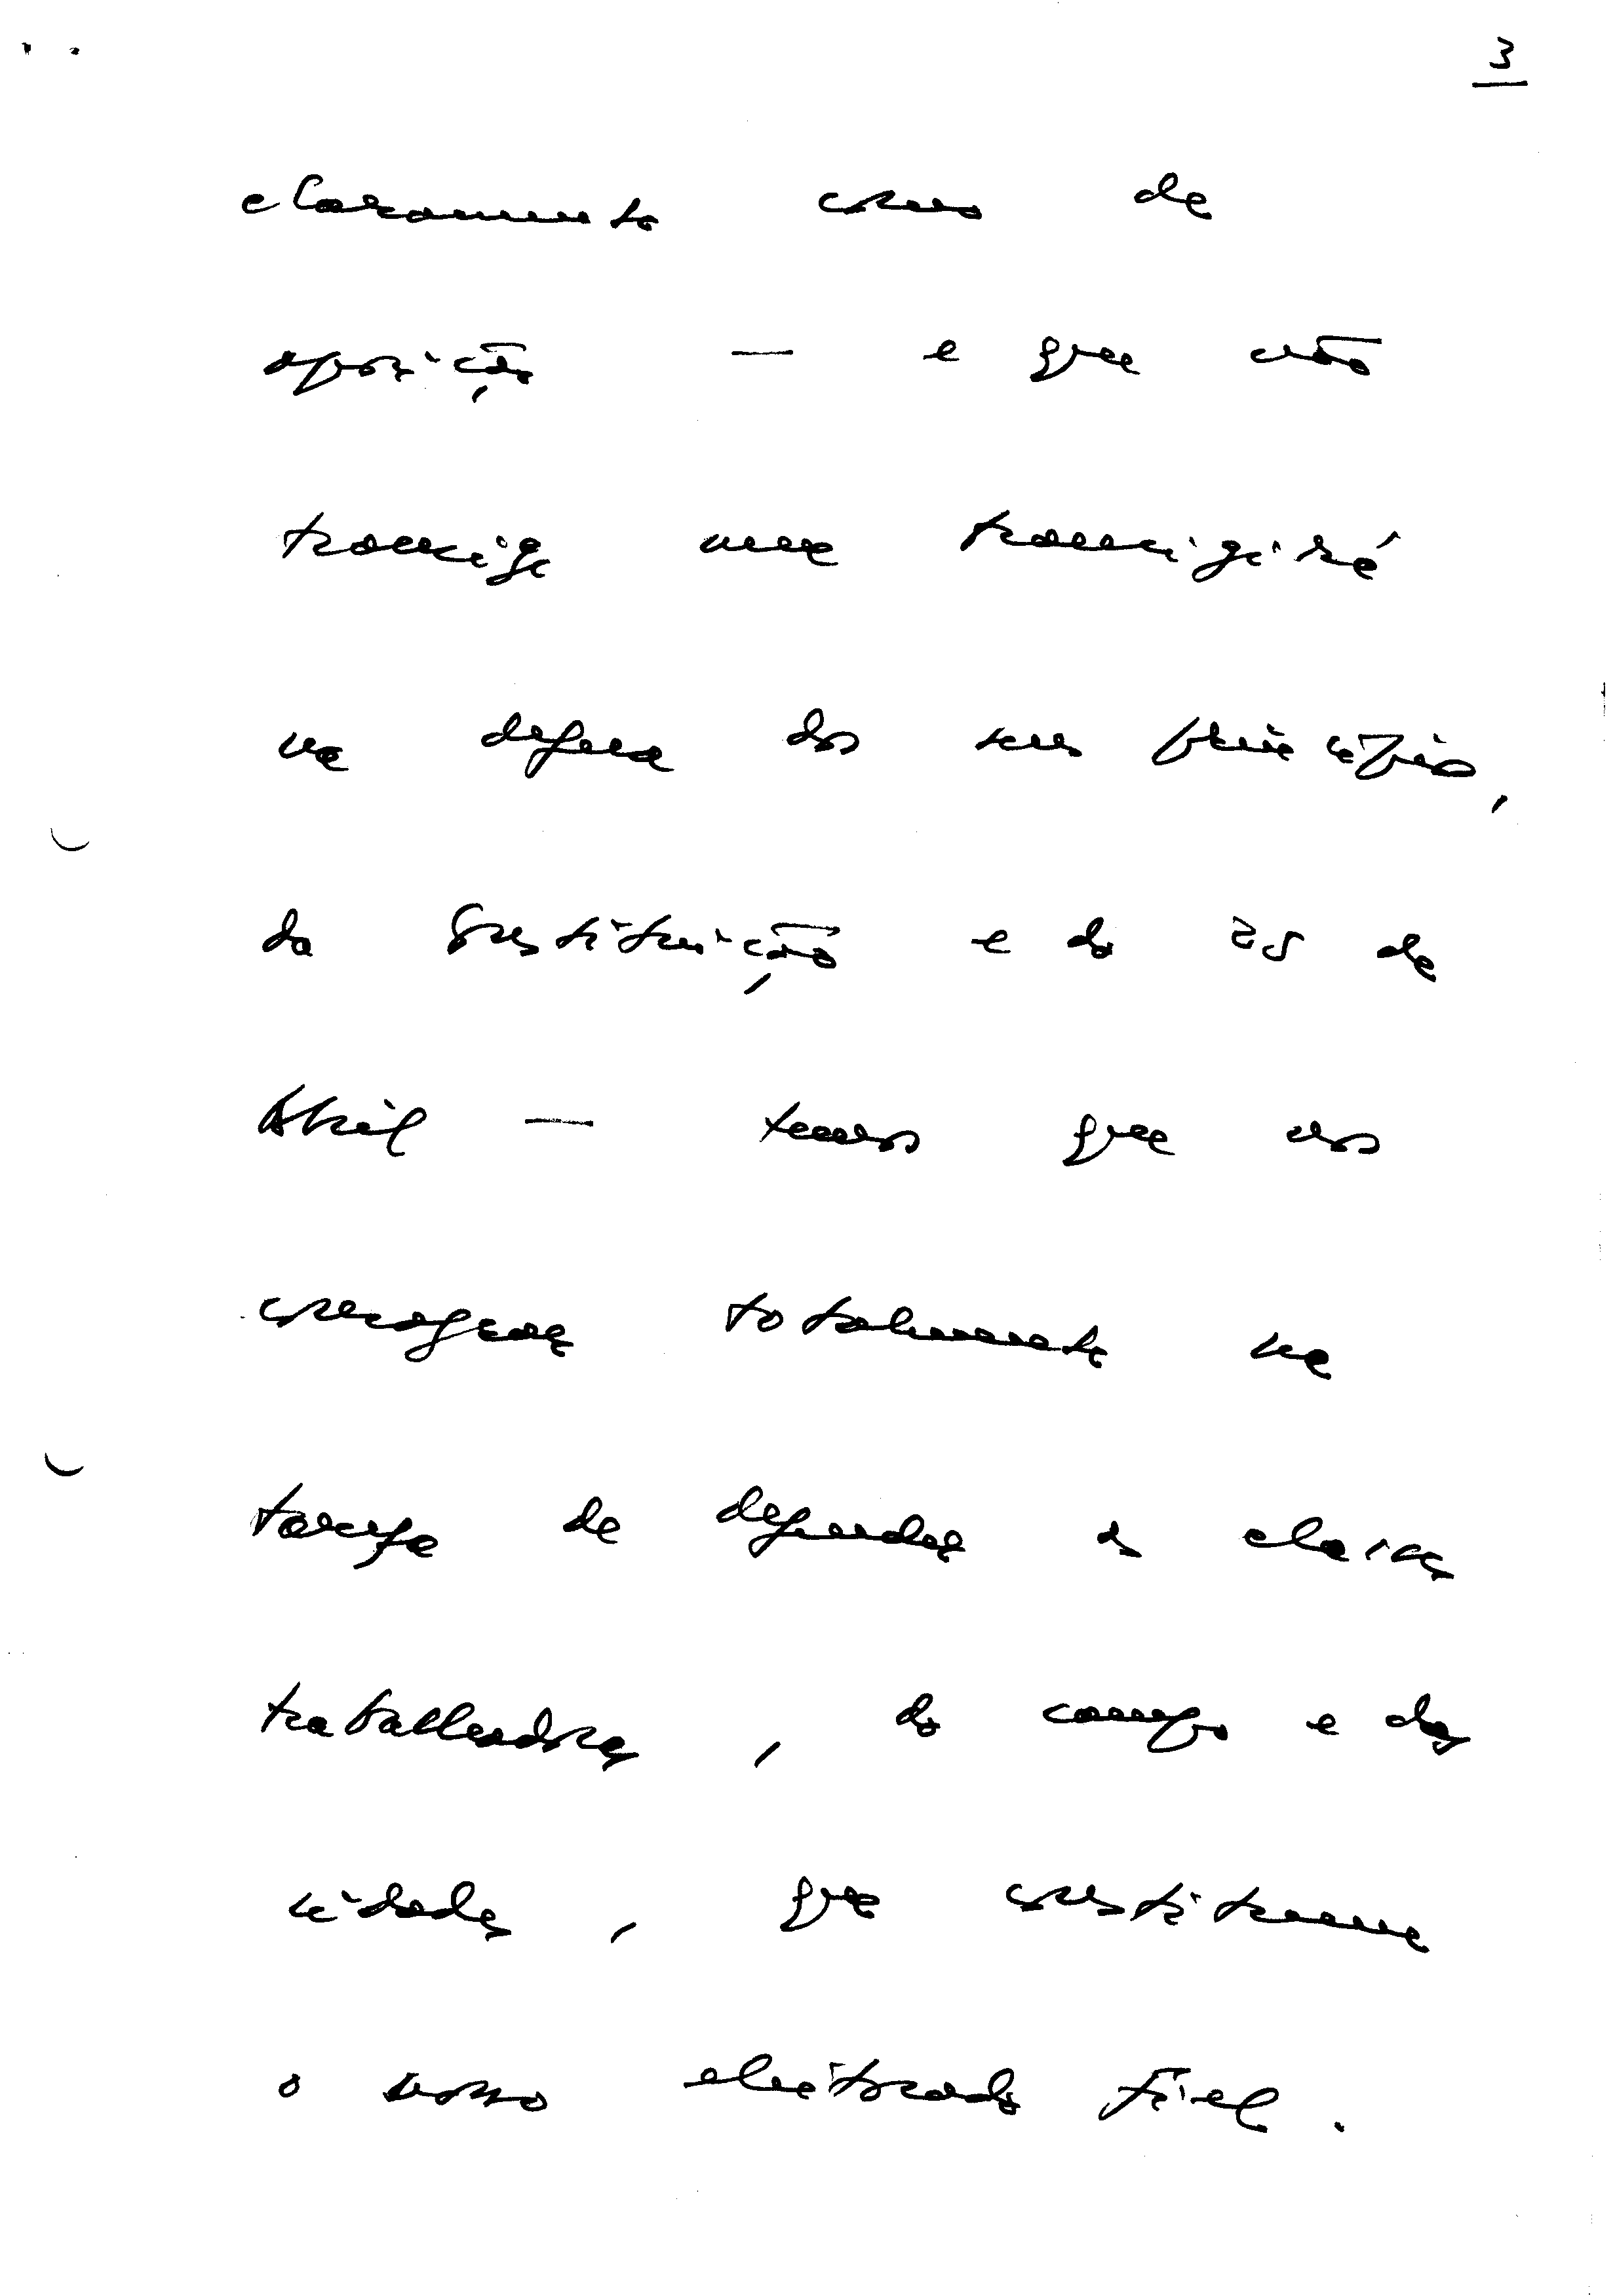 3
claramente como de
oposição — e que não
transige nem transigirá
na defesa dos seus princípios,
da Constituição e do 25 de
Abril — temos que nos
consagrar totalmente na
tarefa de defender as classes
trabalhadoras, do campo e das
cidades, que constituem
o nosso eleitorado fiel.